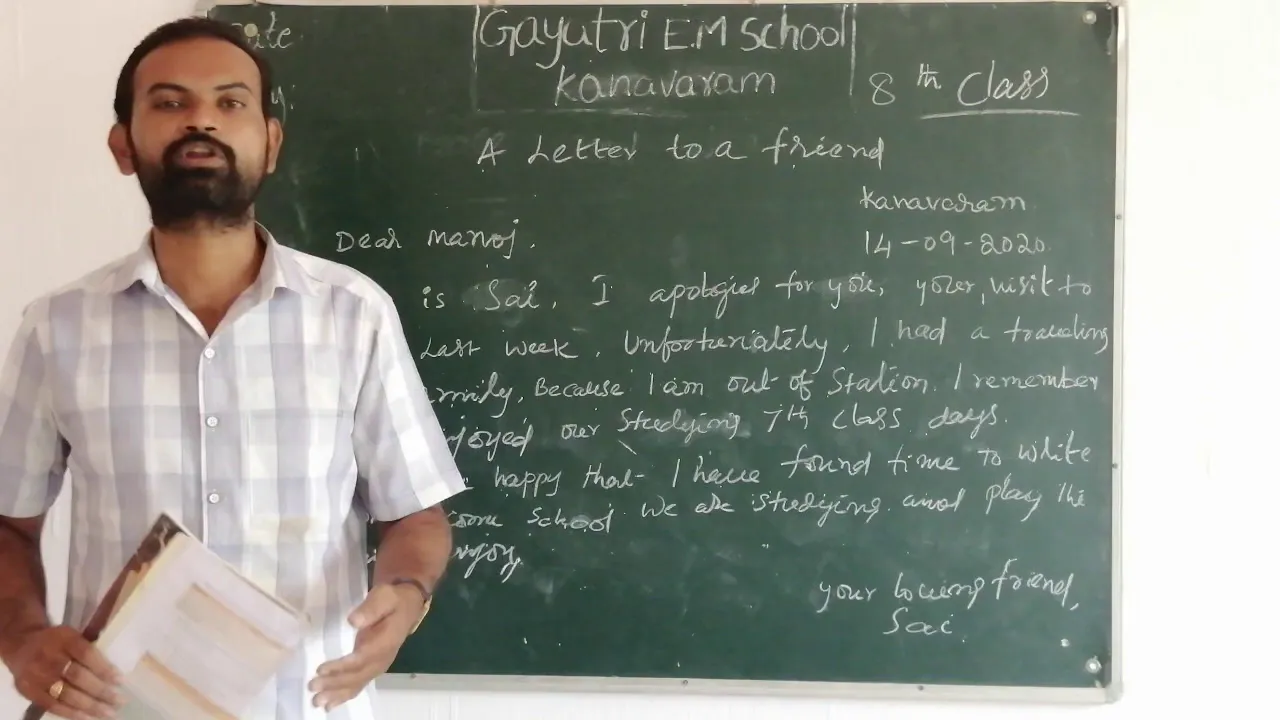 Gayutri E.M School
Kanavaram
8th Class
A Letter to a friend
Kanavaram
14-09-2020.
Dear Manoj.
is Sai. I apologies for you, your, visit to
Last week. Unfortunately, I had a
Because I am out of Station. I remember
our Studying 7th class days.
happy that I have found time to write
School We are studying and play the
your loving friend,
Sai